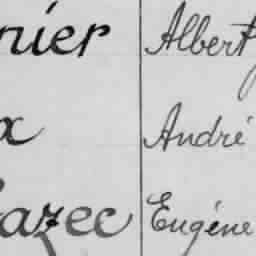 nier Albert
x André
azec Eugène